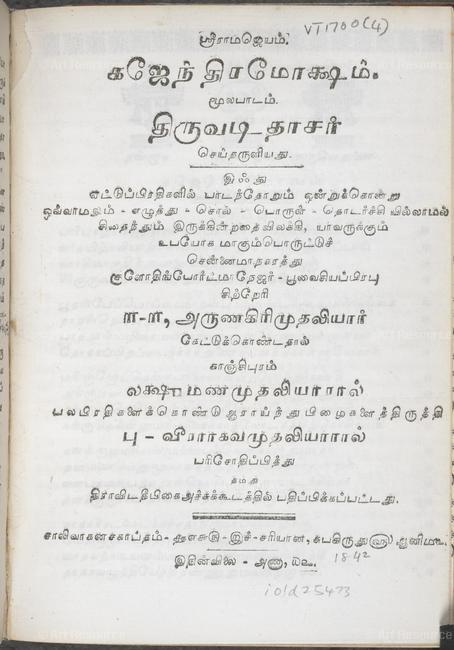 ஸ்ரீராமஜெயம்.
VT1700(4)
கஜேந்திரமோக்ஷம்.
மூலபாடம்.
திருவடிதாசர்
செய்தருளியது.
இஃது
ஏட்டுப்பிரதிகளில் பாடந்தோறும் ஒன்றுக்கொன்று
ஒவ்வாமலும் - எழுத்து - சொல் - பொருள் - தொடர்ச்சி யில்லாமல்
சிதைந்தும் இருக்கின்றதைவிலக்கி, யாவருக்கும்
உபயோக மாகும்பொருட்டுச்
சென்னைமாநகரத்து
பூவைகியப்பிரபு
சிற்றேரி
அருணகிரிமுதலியார்
கேட்டுக்கொண்டதால்
காஞ்சிபுரம்
லக்ஷுமணமுதலியாரால்
பலபிரதிகளைக்கொண்டு ஆராய்ந்துபிழைகளைத்திருத்தி
பு - வீரராகவமுதலியாரால்
பரிசோதிப்பித்து
தமது
திராவிடதீபிகைஅச்சுக்கூடத்தில் பதிப்பிக்கப்பட்டது.
சாலிவாகனசகாப்தம் - சரியான, சுபகிருது
இதின்விலை - அணா,
1842
iold25473
Art Resource